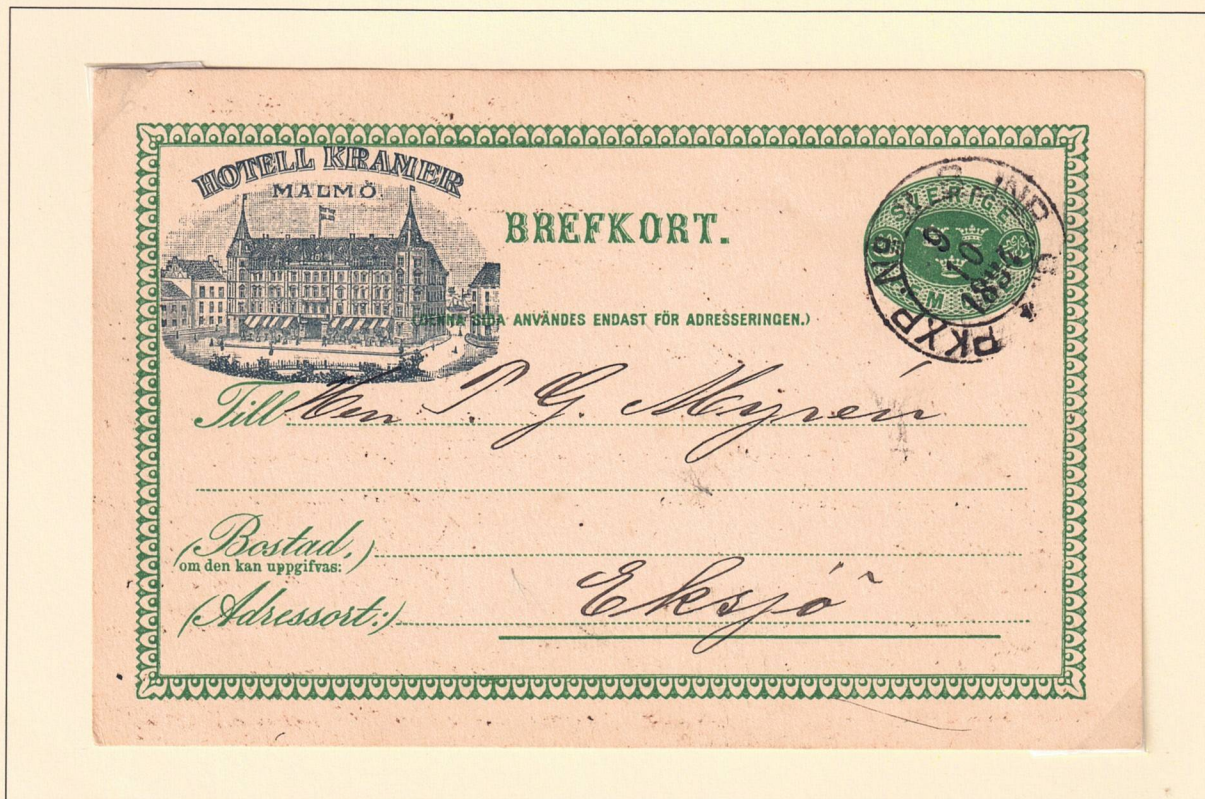 HOTELL KRAMER
MALMÖ.
BREFKORT.
SVERIGE
PKXP No
9
10
(DENNA SIDA ANVÄNDES ENDAST FÖR ADRESSERINGEN.)
Till Herr P G Myrén
(Bostad,)
om den kan uppgifvas:
(Adressort:) Eksjö